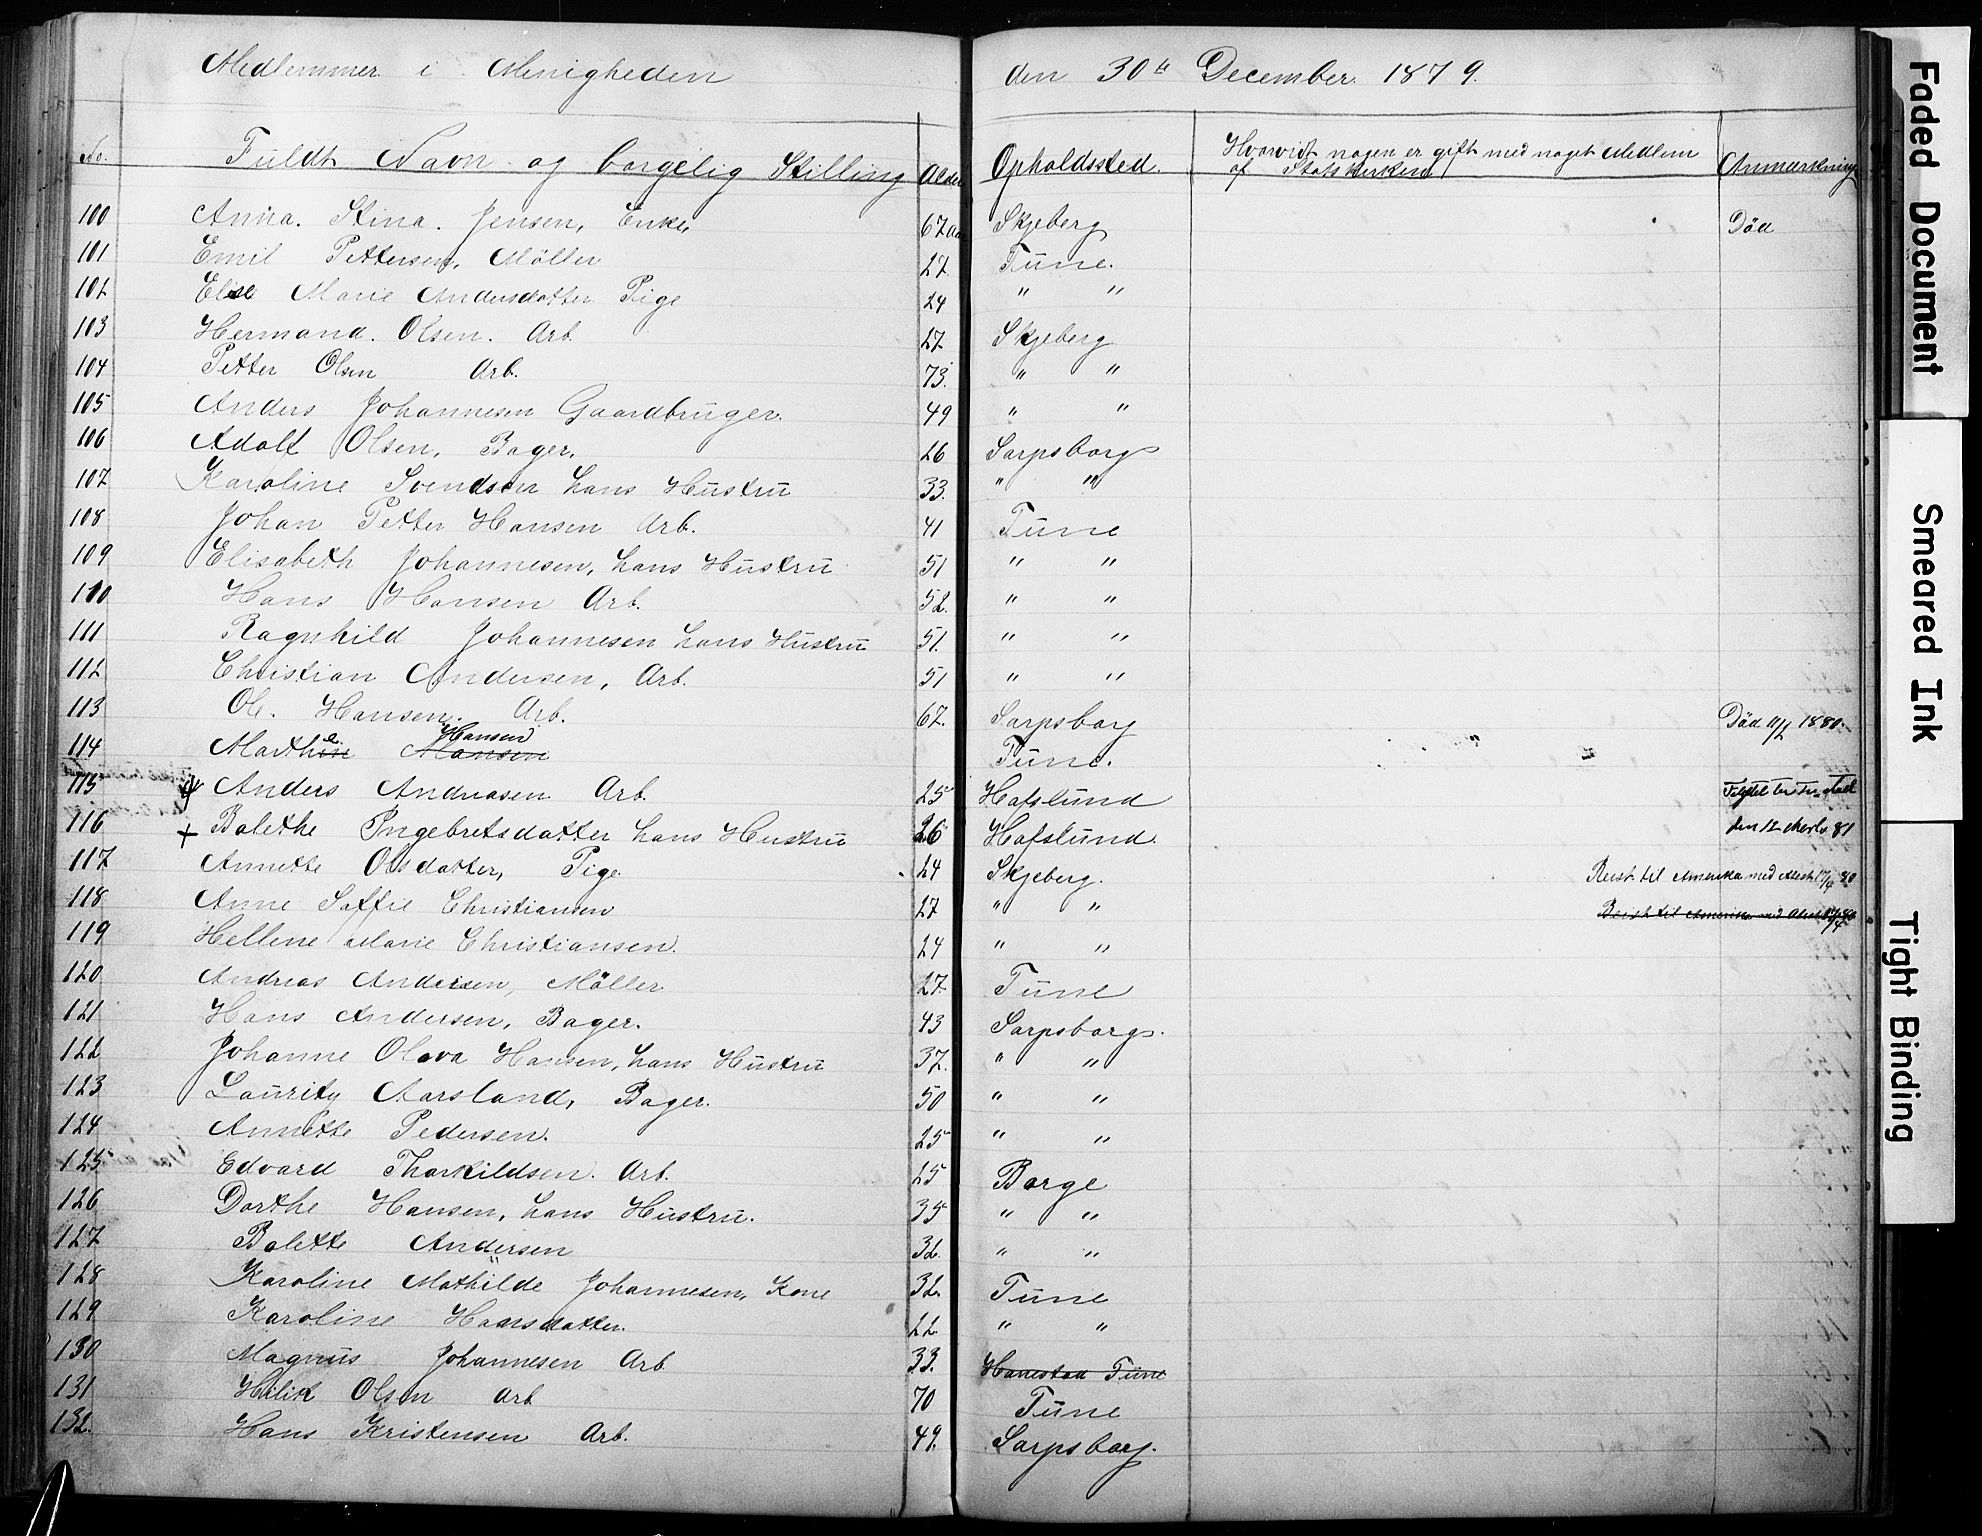 Medlemmer i Menigheden den 30te December 1879.
No. Fuldt Navn og borgelig Stilling Alder Opholdssted. Hvorvidt nogen er gift med noget Medlem af Statskirken Anmærkning
100 Anna Stina Jensen, Enke, 67 Aar Skjeberg Död
101 Emil Pettersen, Möller 27 Tune.
102 Elise Marie Andersdatter Pige 24 " "
103 Hermand Olsen. Arb. 27 Skjeberg
104 Petter Olsen Arb. 73. " "
105 Anders Johannesen Gaardbruger. 49 " "
106 Adolf Olsen, Bager, 26 Sarpsborg
107 Karoline Svendsen hans Hustru 33. " "
108 Johan Petter Hansen Arb. 41 Tune
109 Elisabeth Johannesen, hans Hustru 51 " "
110 Hans Hansen Arb. 52. " "
111 Ragnhild Johannesen hans Hustru 51. " "
112 Christian Andersen, Arb. 51 " "
113 Ole. Hansen. Arb. 67. Sarpsborg Död 11/2 1880.
114 Marthine Hansen Tune.
115 Anders Andreasen Arb. 25 Hafslund
116 + Balethe Ingebretsdatter hans Hustru 26 Hafslund. den 12 81
117 Annette Olsdatter, Pige 24 Skjeberg. Reist til Amerika med Attest 17/4 80
118 Anne Soffie Christiansen 27 " " Reist til Amerika med Attest 17/4 80
119 Hellene Marie Christiansen. 24 " "
120 Andreas Andersen, Möller 27. Tune
121 Hans Andersen, Bager. 43 Sarpsborg.
122 Johanne Olava Hansen, hans Hustru 37. " "
123 Lauritz Aarsland, Bager. 50 " "
124 Annette Pedersen. 25 " "
125 Edvard Thorkildsen. Arb. 25 Borge
126 Dorthe Hansen, hans Hustru. 35 " "
127 Balette Andersen 32. " "
128 Karoline Mathilde Johannesen, Kone 32. Tune
129 Karoline Hansdatter. 22 " "
130 Magnus Johannesen Arb 33. Hanestad Tune
131 Olsen Arb 70 Tune
132. Hans Kristensen Arb. 49. Sarpsborg.
Faded Document
Smeared Ink
Tight Binding